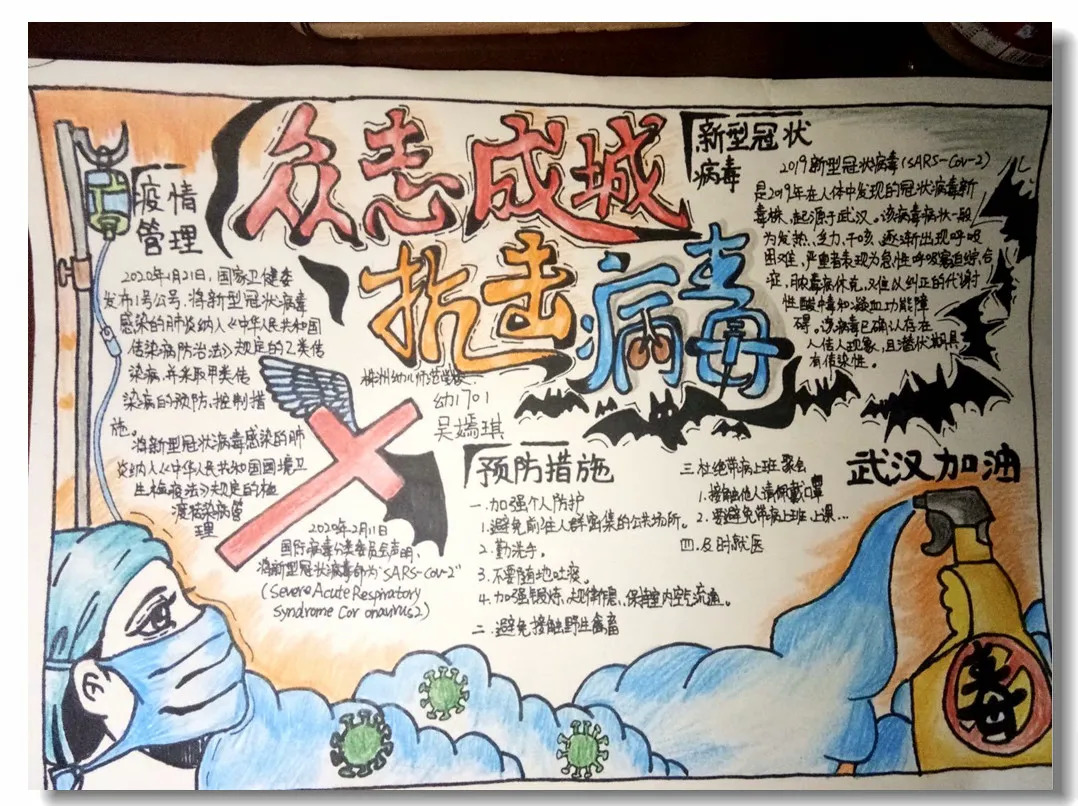 众志成城
抗击病毒
疫情
管理
2020年1月21日,国家卫健委
发布1号公告,将新型冠状病毒
感染的肺炎纳入《中华人民共和国
传染病防治法》规定的乙类传
染病,并采取甲类传
染病的预防、控制措
施。
将新型冠状病毒感染的肺
炎纳入《中华人民共和国国境卫
生检疫法》规定的检
疫传染病管
理
2020年2月11日
国际病毒分类委员会声明,
将新型冠状病毒命为"SARS-Cov-2"
(Severe Acute Respiratory
Syndrome Cor onavirus2)
株洲幼儿师范学校
幼1701
吴嫣琪
新型冠状
病毒
2019新型冠状病毒(SARS-Cov-2)
是2019年在人体中发现的冠状病毒新
毒株,起源于武汉。该病毒病状一般
为发热、乏力、干咳、逐渐出现呼吸
困难,严重者表现为急性呼吸窘迫综合
症、脓毒病休克、难以纠正的代谢
性酸中毒和凝血功能障
碍。该病毒已确认存在
人传人现象,且潜伏期具
有传染性。
预防措施
一.加强个人防护
1.避免前往人群密集的公共场所。
2.勤洗手。
3.不要随地吐痰。
4.加强锻炼,规律作息,保持室内空气流通。
二.避免接触野生禽畜
三.杜绝带病上班聚会
1.接触他人请佩戴口罩
2.要避免带病上班、上课...
四.及时就医
武汉加油
毒